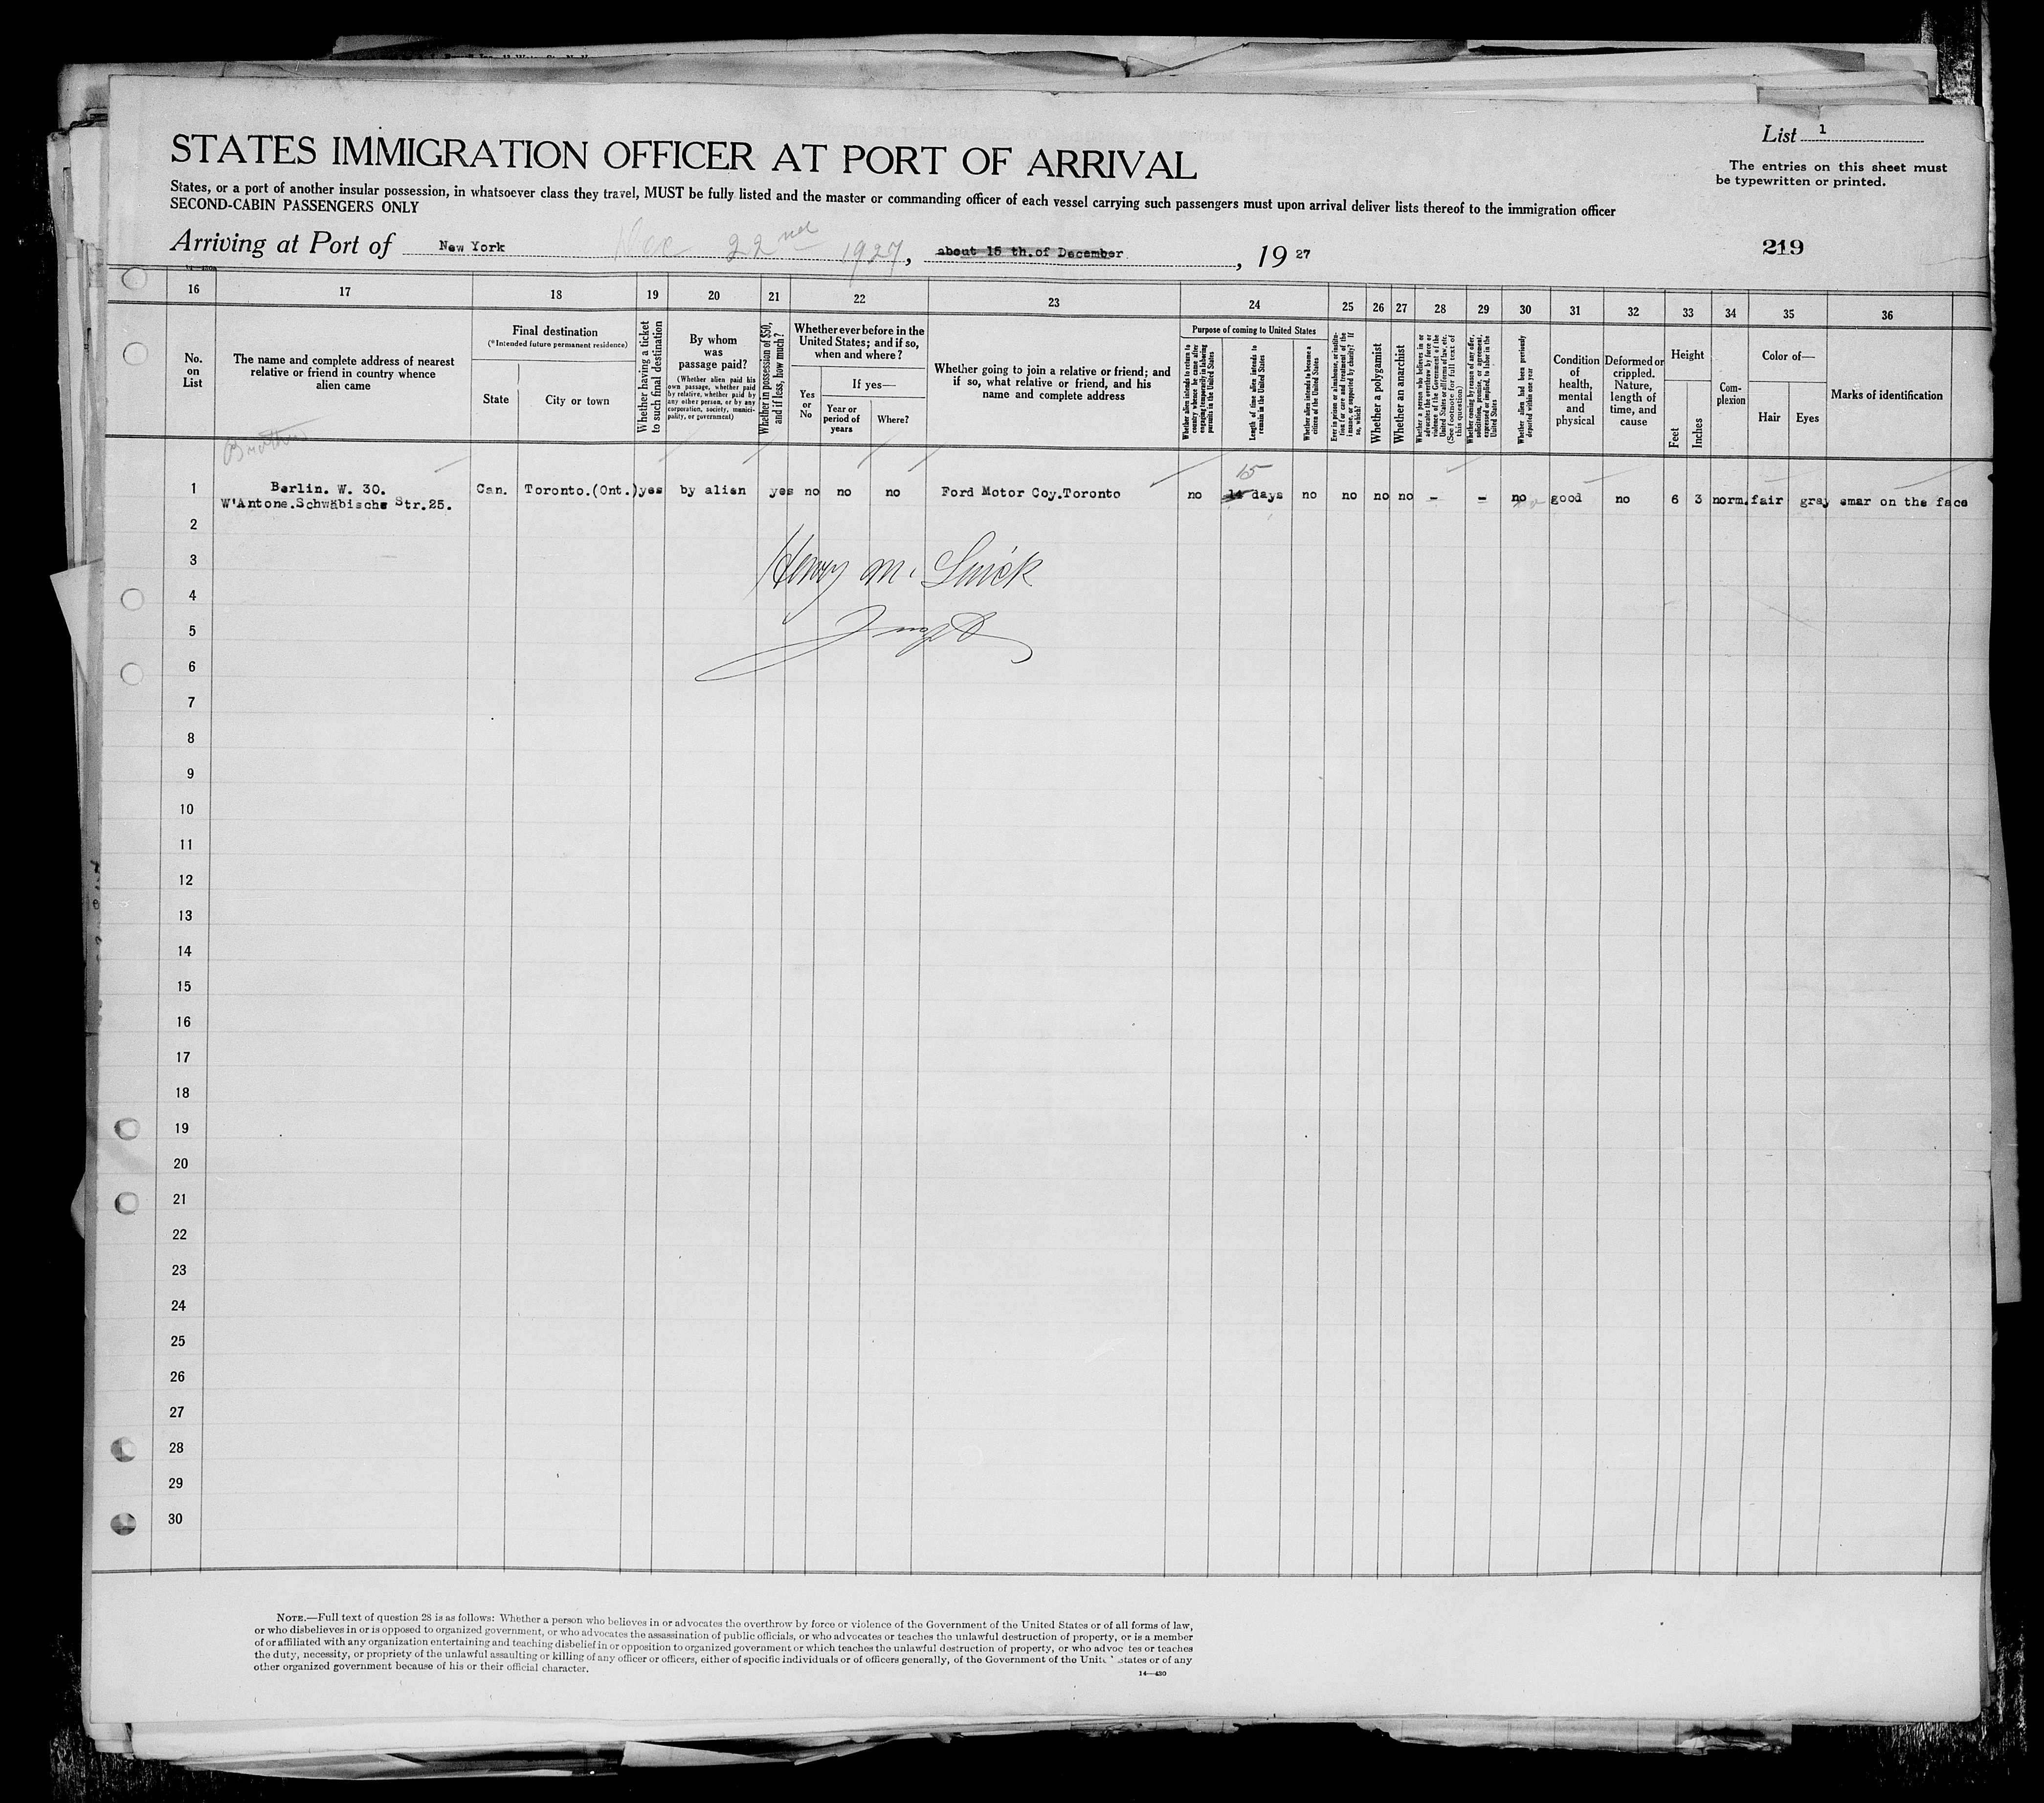 List 1
STATES IMMIGRATION OFFICER AT PORT OF ARRIVAL
The entries on this sheet must
be typewritten or printed.
States, or a port of another insular possession, in whatsoever class they travel, MUST be fully listed and the master or commanding officer of each vessel carrying such passengers must upon arrival deliver lists thereof to the immigration officer
SECOND-CABIN PASSENGERS ONLY
Arriving at Port of New York Dec 22nd 1927, about 15 th.of December, 19 27
219
16 17 18 19 20 21 22 23 24 25 26 27 28 29 30 31 32 33 34 35 36
No.
on
List
The name and complete address of nearest
relative or friend in country whence
alien came
Final destination
(*Intended future permanent residence)
State
City or town
Whether having a ticket
to such final destination
By whom
was
passage paid?
(Whether alien paid his
own passage, whether paid
by relative, whether paid by
any other person, or by any
corporation, society, munici-
pality, or government)
Whether in possession of $50,
and if less, how much?
Whether ever before in the
United States; and if so,
when and where?
Yes
or
No
If yes—
Year or
period of
years
Where?
Whether going to join a relative or friend; and
if so, what relative or friend, and his
name and complete address
Purpose of coming to United States
Whether alien intends to return to
country whence he came after
engaging temporarily in laboring
pursuits in the United States
Length of time alien intends to
remain in the United States
Whether alien intends to become a
citizen of the United States
Ever in prison or almshouse, or institu-
tion for care and treatment of the
insane, or supported by charity? If
so, which?
Whether a polygamist
Whether an anarchist
Whether a person who believes in or
advocates the overthrow by force or
violence of the Government of the
United States or all forms of law, etc.
(See footnote for full text of
this question)
Whether coming by reason of any offer,
solicitation, promise, or agreement,
expressed or implied, to labor in the
United States
Whether alien had been previously
deported within one year
Condition
of
health,
mental
and
physical
Deformed or
crippled.
Nature,
length of
time, and
cause
Height
Feet
Inches
Com-
plexion
Color of—
Hair
Eyes
Marks of identification
Brother
15
1 Berlin. W. 30. Can. Toronto.(Ont.) yes by alien yes no no no Ford Motor Coy.Toronto no 14 days no no no no - - no good no 6 3 norm. fair gray smar on the face
W'Antone.Schwäbische Str.25.
2
Henry M.
3
4
5
6
7
8
9
10
11
12
13
14
15
16
17
18
19
20
21
22
23
24
25
26
27
28
29
30
NOTE.—Full text of question 28 is as follows: Whether a person who believes in or advocates the overthrow by force or violence of the Government of the United States or of all forms of law,
or who disbelieves in or is opposed to organized government, or who advocates the assassination of public officials, or who advocates or teaches the unlawful destruction of property, or is a member
of or affiliated with any organization entertaining and teaching disbelief in or opposition to organized government or which teaches the unlawful destruction of property, or who advoc tes or teaches
the duty, necessity, or propriety of the unlawful assaulting or killing of any officer or officers, either of specific individuals or of officers generally, of the Government of the Unit States or of any
other organized government because of his or their official character.
14—430